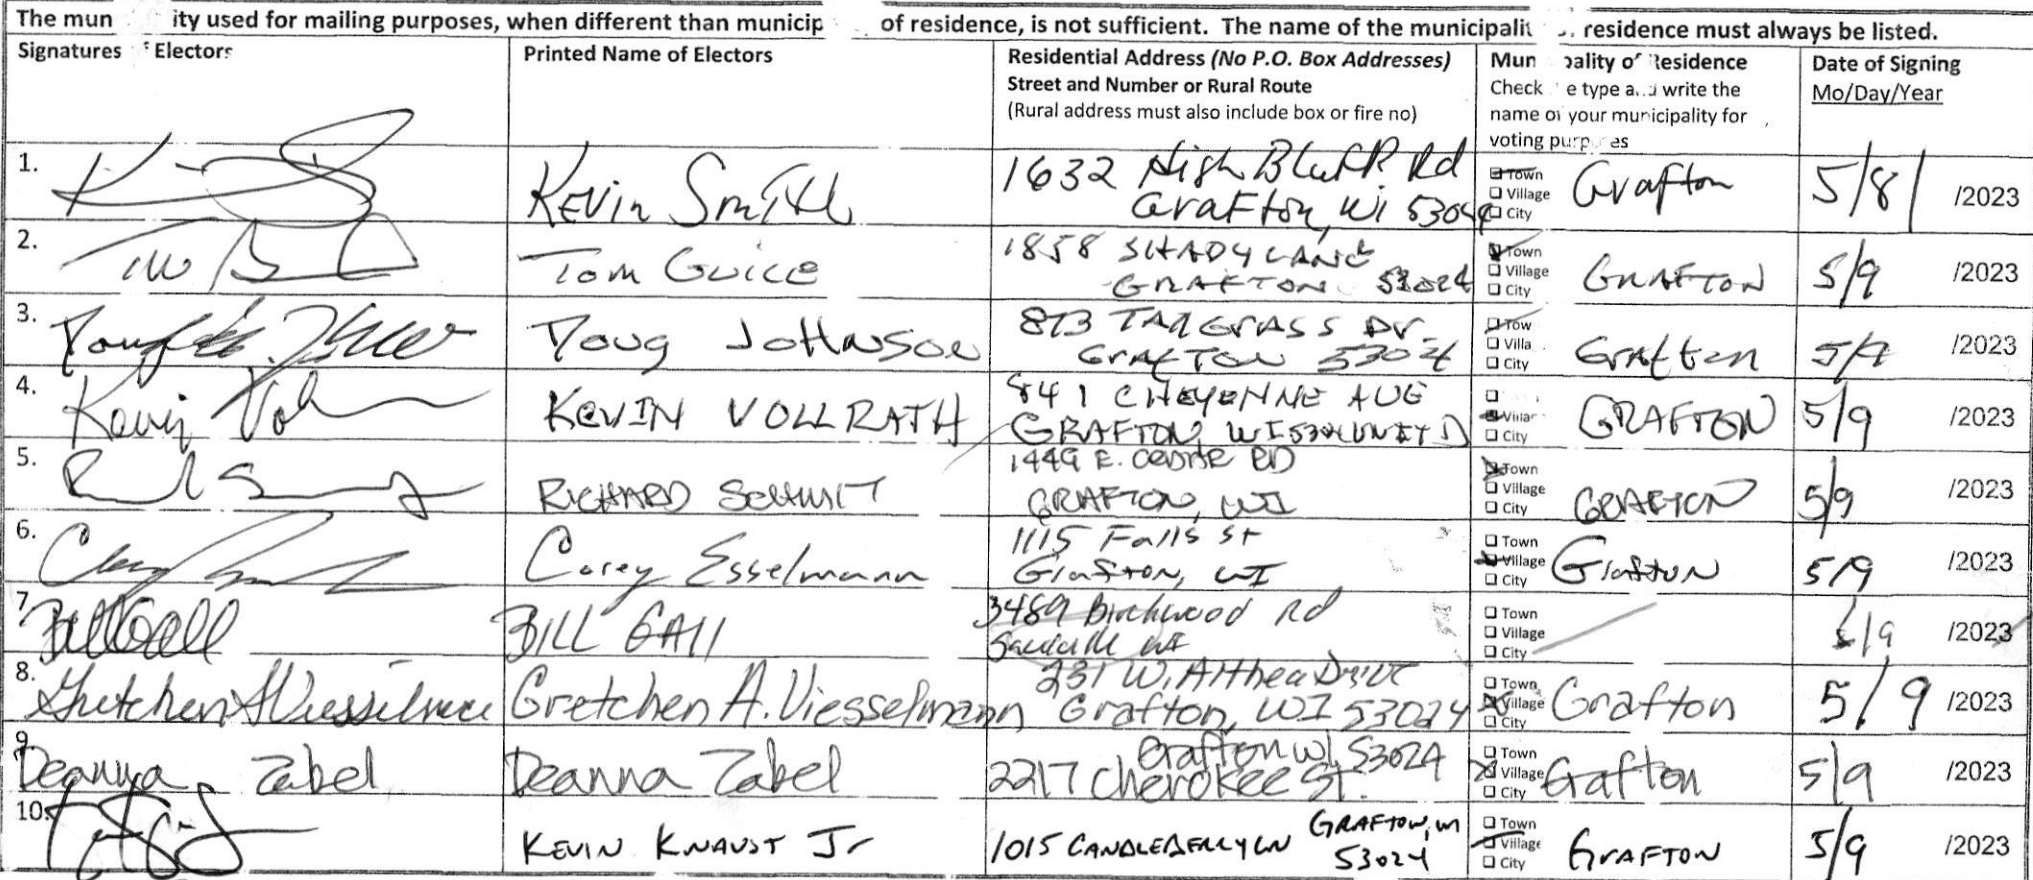 The mun ity used for mailing purposes, when different than municip of residence, is not sufficient. The name of the municipalit residence must always be listed.
Signatures Electors
Printed Name of Electors
Residential Address (No P.O. Box Addresses)
Street and Number or Rural Route
(Rural address must also include box or fire no)
Mun pality of Residence
Check e type a write the
name of your municipality for
voting purp es
Date of Signing
Mo/Day/Year
1.
Kevin Smith
1632 High Bluff Rd
Grafton, WI 53024
Town
Village
City
Grafton
5/8/ /2023
2.
Tom Guice
1858 SHADY LANE
GRAFTON 53024
Town
Village
City
GRAFTON
5/9 /2023
3.
Doug Johnson
873 TALLGRASS DR.
Grafton 53024
Tow
Villa
City
Grafton
5/9 /2023
4.
KEVIN VOLLRATH
841 CHEYENNE AVE
GRAFTON, WI 53024 UNIT D
Villar
City
GRAFTON
5/9 /2023
5.
RICHARD SCHMIT
1449 E.
GRAFTON, WI
Town
Village
City
GRAFTON
5/9 /2023
6.
Corey Esselmann
1115 Falls St
Grafton, WI
Town
Village
City
Grafton
5/9 /2023
7
Bill Gall
BILL GAll
3489 Birchwood Rd
WI
Town
Village
City
5/9 /2023
8.
Gretchen A Viesselmann
Gretchen A. Viesselmann
231 W. Althea Drive
Grafton, WI 53024
Town
Village
City
Grafton
5/9 /2023
9
Deanna Zabel
Deanna Zabel
Grafton WI 53024
2217 Cherokee St.
Town
Village
City
Grafton
5/9 /2023
10.
KEVIN KNAUST Jr
1015 CANDLEBERRY LN GRAFTON, WI
53024
Town
Village
City
GRAFTON
5/9 /2023